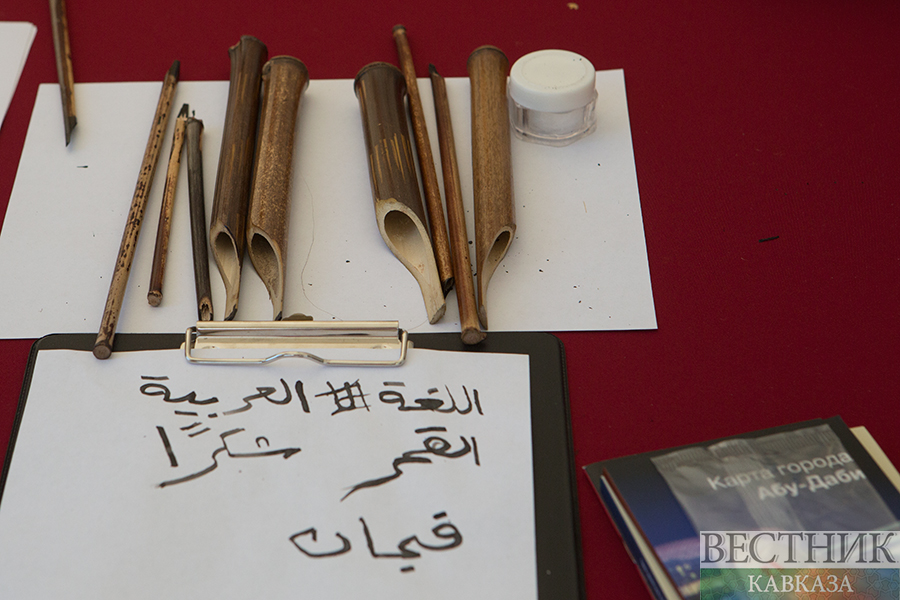 اللغة # العربية
القمر شكرًا
قيمان
Карта города
Абу-Даби
ВЕСТНИК
КАВКАЗА